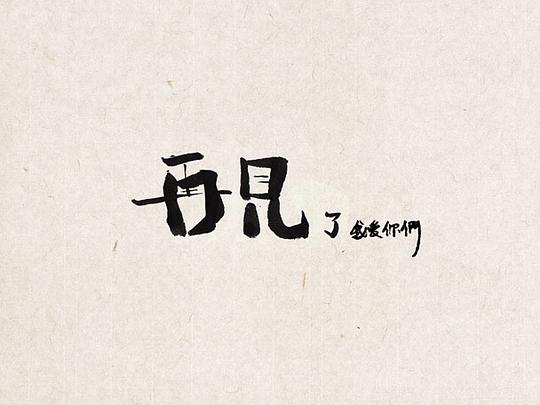 再見了 我愛你們